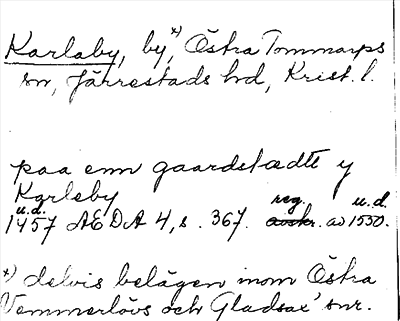 Karlaby, by,ˣ⁾ Östra Tommarps
sn, Järrestads hd, Krist. l.
paa enn gaardstædtt y
Karleby
u.d. reg. u.d.
1457 ÆDA 4, s. 367. avskr. av 1550.
x) delvis belägen inom Östra
Vemmerlövs och Gladsax' snr.